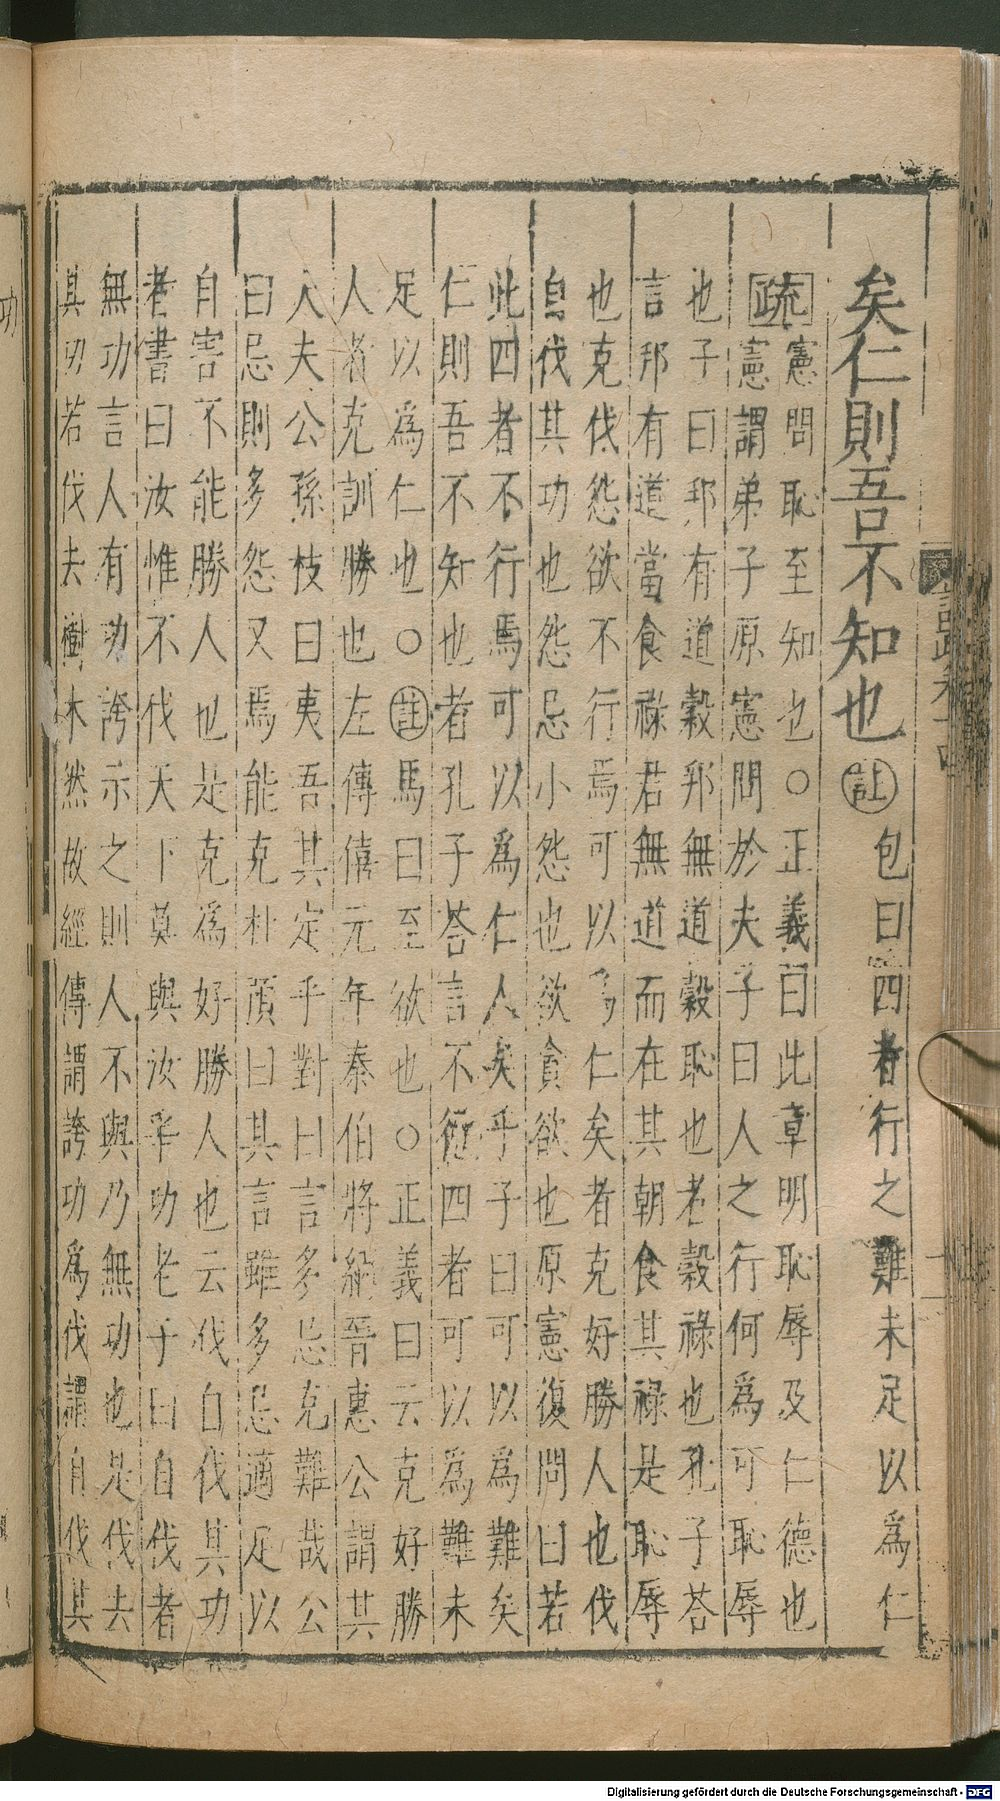 矣仁則吾不知也 註 包曰四者行之難未足以爲仁
疏 憲問恥至知也○正義曰此章明恥辱及仁德也
憲謂弟子原憲問於夫子曰人之行何爲可恥辱
也子曰邦有道穀邦無道穀恥也者穀祿也孔子荅
言邦有道當食祿君無道而在其朝食其祿是恥辱
也克伐怨欲不行焉可以爲仁矣者克好勝人也伐
自伐其功也怨忌小怨也欲貪欲也原憲復問曰若
此四者不行焉可以爲仁人矣乎子曰可以爲難矣
仁則吾不知也者孔子荅言不行四者可以爲難未
足以爲仁也○註馬曰至欲也○正義曰云克好勝
人者克訓勝也左傳僖元年秦伯將納晉惠公謂其
大夫公孫枝曰夷吾其定乎對曰言多忌克難哉公
曰忌則多怨又焉能克杜預曰其言雖多忌適足以
自害不能勝人也是克爲好勝人也云伐自伐其功
者書曰汝惟不伐天下莫與汝爭功老子曰自伐者
無功言人有功誇示之則人不與乃無功也是伐去
其功若伐去樹木然故經傳謂誇功爲伐謂自伐其
功
Digitalisierung gefördert durch die Deutsche Forschungsgemeinschaft - DFG